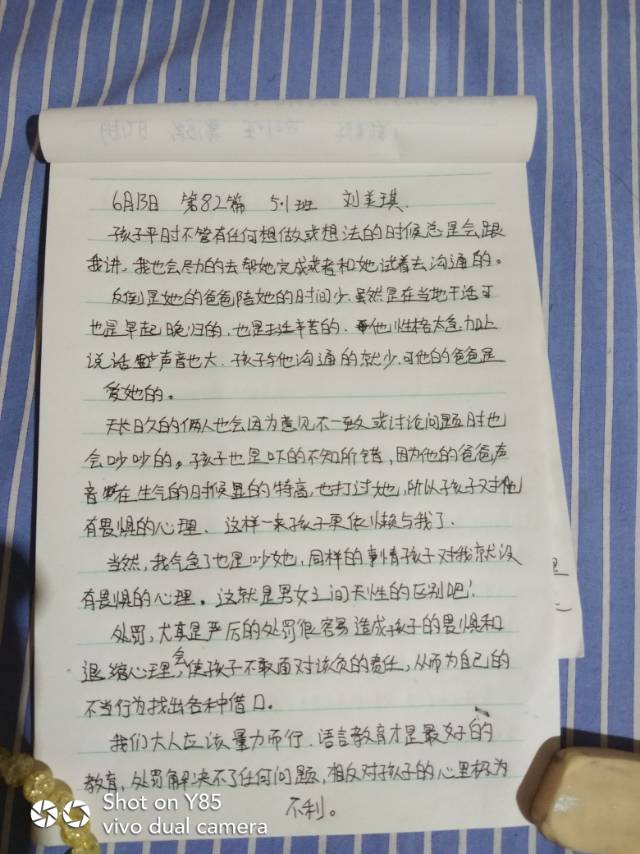 6月13日 第82篇 5.1班 刘美琪.
孩子平时不管有任何想做或想法的时候总是会跟
我讲,我也会尽力的去帮她完成或者和她试着去沟通的。
反倒是她的爸爸陪她的时间少.虽然是在当地干活可
也是早起晚归的.也是挺辛苦的.他性格太急,加上
说话声音也大.孩子与他沟通的就少.可他的爸爸是
爱她的。
天长日久的俩人也会因为意见不一致或讨论问题时也
会吵吵的。孩子也是吓的不知所错,因为他的爸爸声
音在生气的时候显的特高,也打过她,所以孩子对他
有畏惧的心理.这样一来孩子更依赖与我了.
当然,我气急了也是吵她,同样的事情孩子对我就没
有畏惧的心理。这就是男女之间天性的区别吧!
处罚,尤其是严厉的处罚很容易造成孩子的畏惧和
退缩心理,会使孩子不敢面对该负的责任,从而为自己的
不当行为找出各种借口。
我们大人应该量力而行.语言教育才是最好的
教育,处罚解决不了任何问题,相反对孩子的心里极为
不利。
Shot on Y85
vivo dual camera